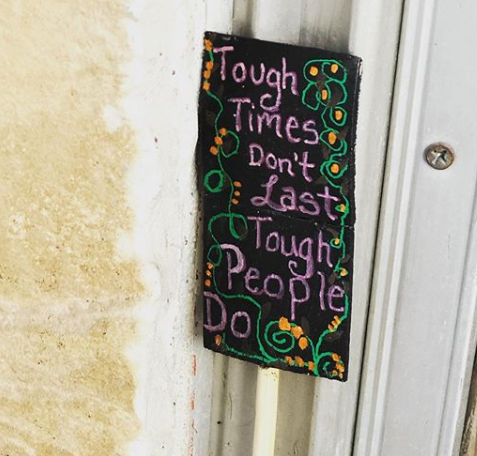 Tough
Times
Don't
Last
Tough
People
Do